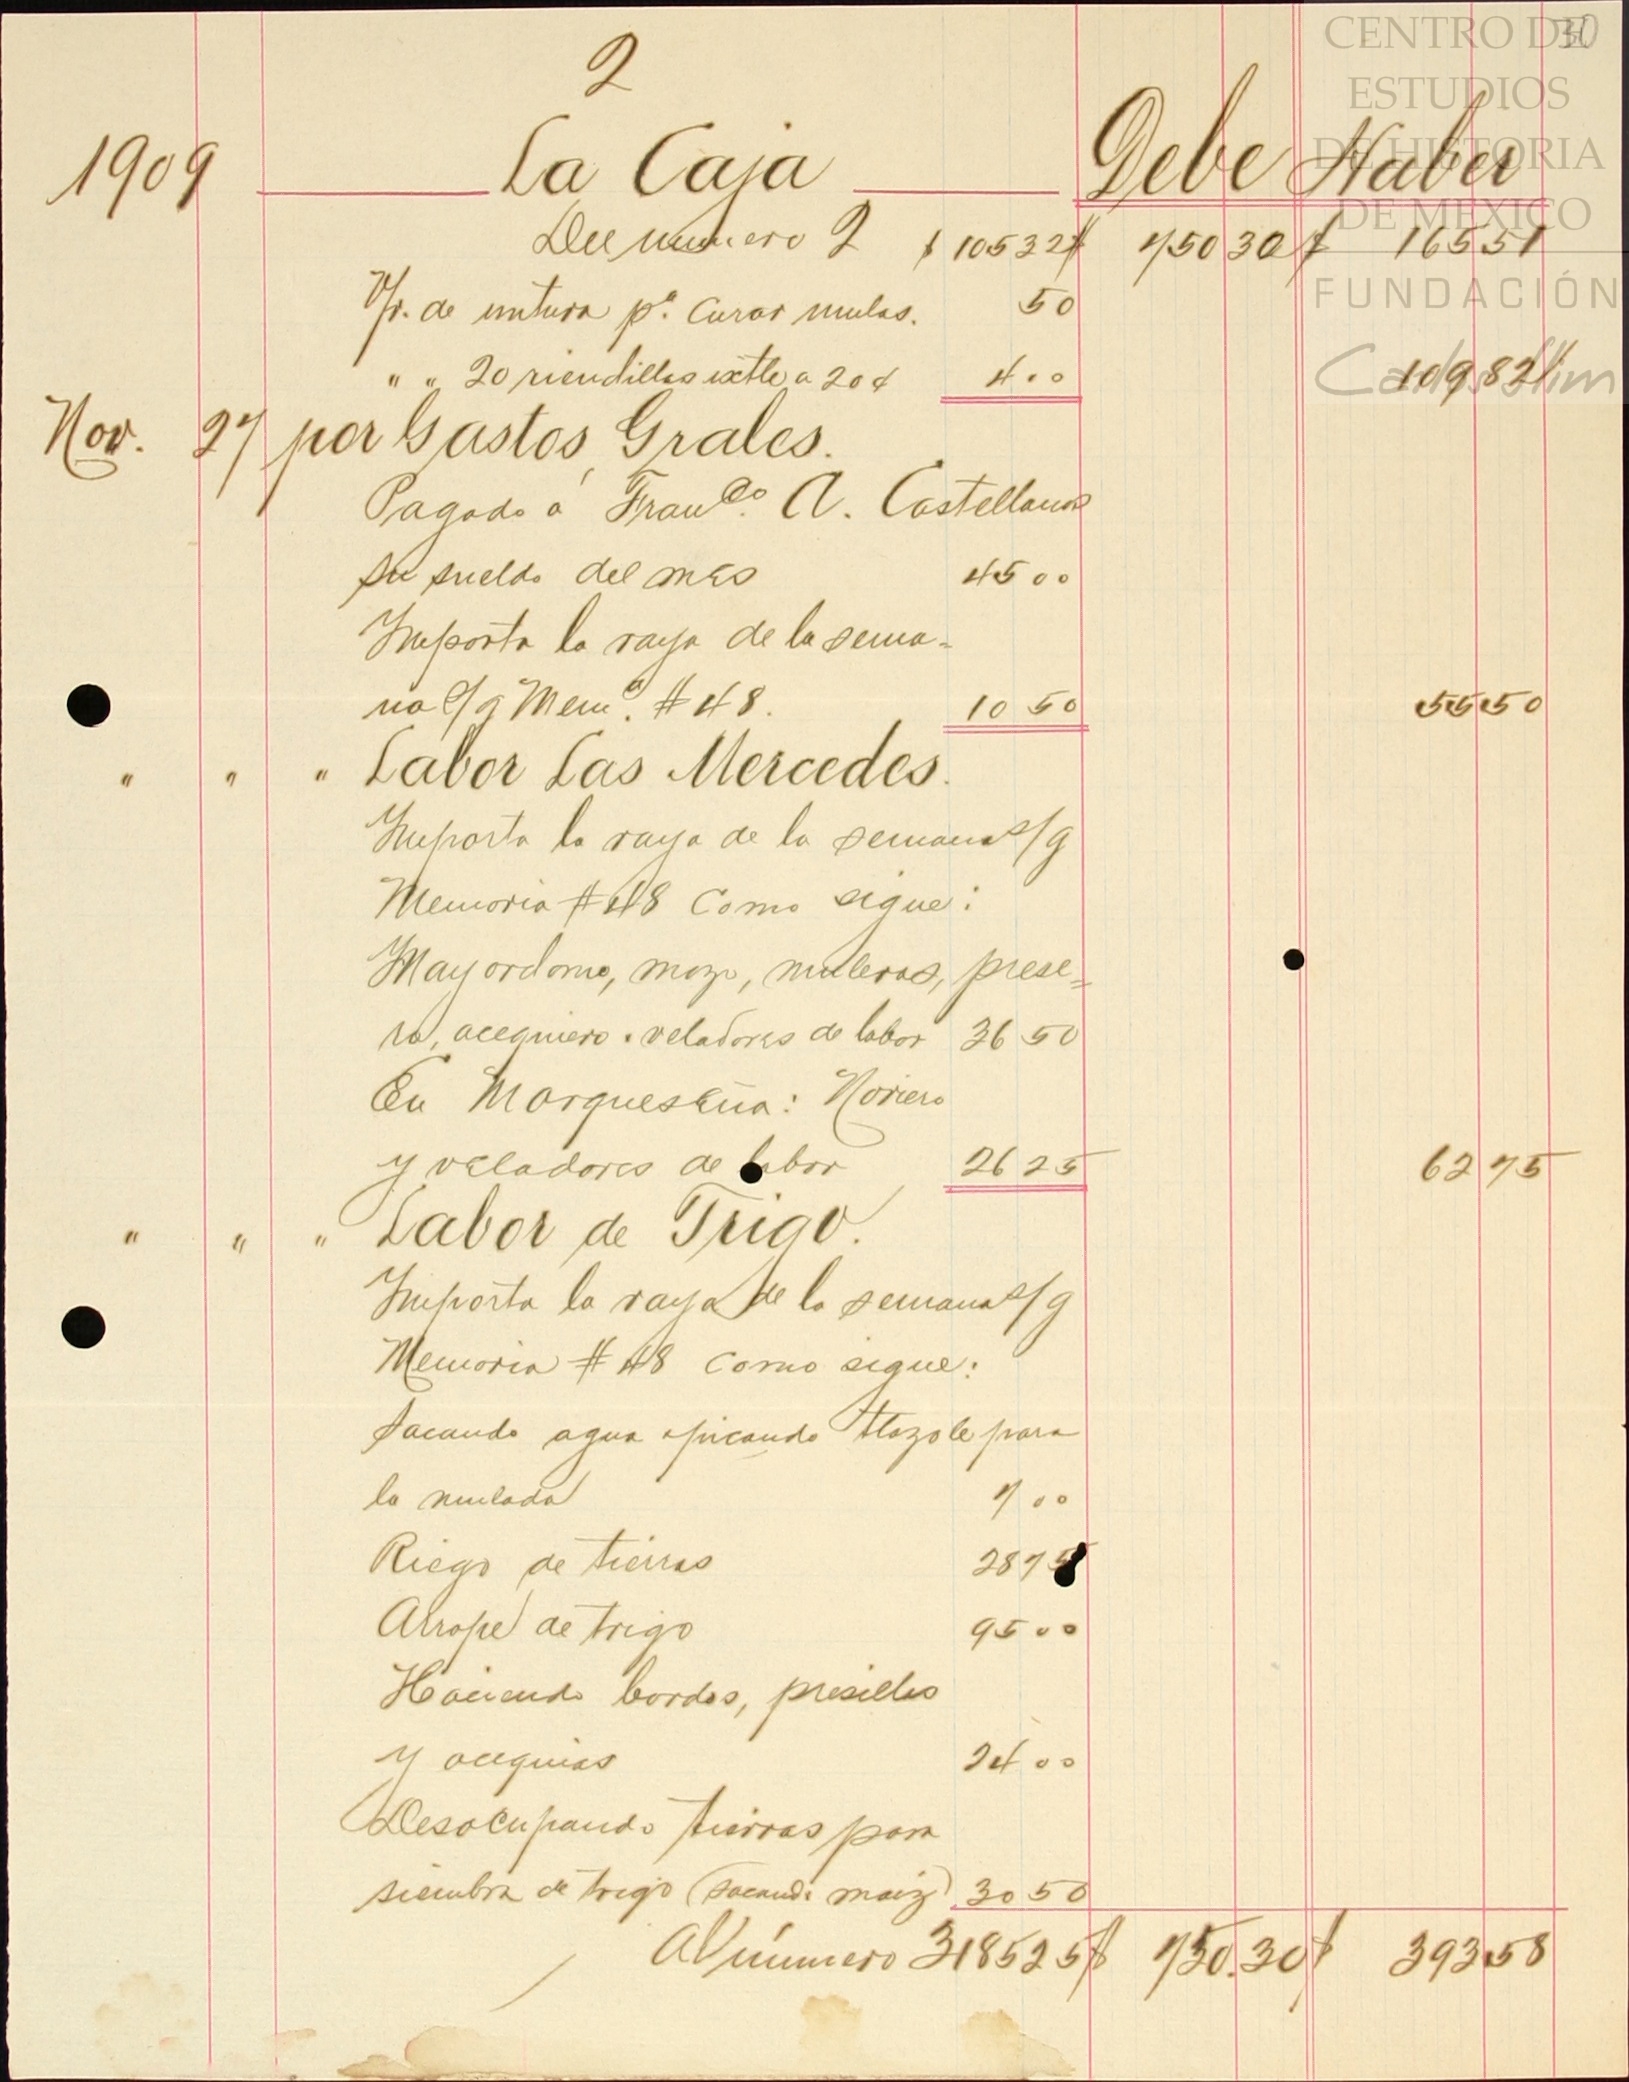 30
CENTRO DE
ESTUDIOS
DE HISTORIA
DE MEXICO
FUNDACIÓN
Carlos Slim
2
1909 La Caja Debe Haber
Del número 2 $ 105 32 $ 750 30 $ 165 51
Vr. de untura pª. curar mulas. 50
" " 20 riendillas ixtle a 20 ¢ 4 00 109 82
Nov. 27 por Gastos Grales.
Pagado á Franco. A. Castellanos
su sueldo del mes 45 00
Importa la raya de la sema-
na s/g Mema. # 48. 10 50 55 50
" " " Labor Las Mercedes.
Importa la raya de la semana s/g
Memoria # 48 como sigue:
Mayordomo, mozo, muleros, prese-
ro, acequiero. veladores de labor 36 50
En Marqueseña: Noriero
y veladores de labor 26 25 62 75
" " " Labor de Trigo.
Importa la raya de la semana s/g
Memoria # 48 como sigue:
Sacando agua picando tlazole para
la mulada 7 00
Riego de tierras 28 75
Arrope de trigo 95 00
Haciendo bordos, presillas
y acequias 24 00
Desocupando tierras para
siembra de trigo (sacando maiz) 30 50
Al número 3 185 25 $ 750.30 $ 393 58